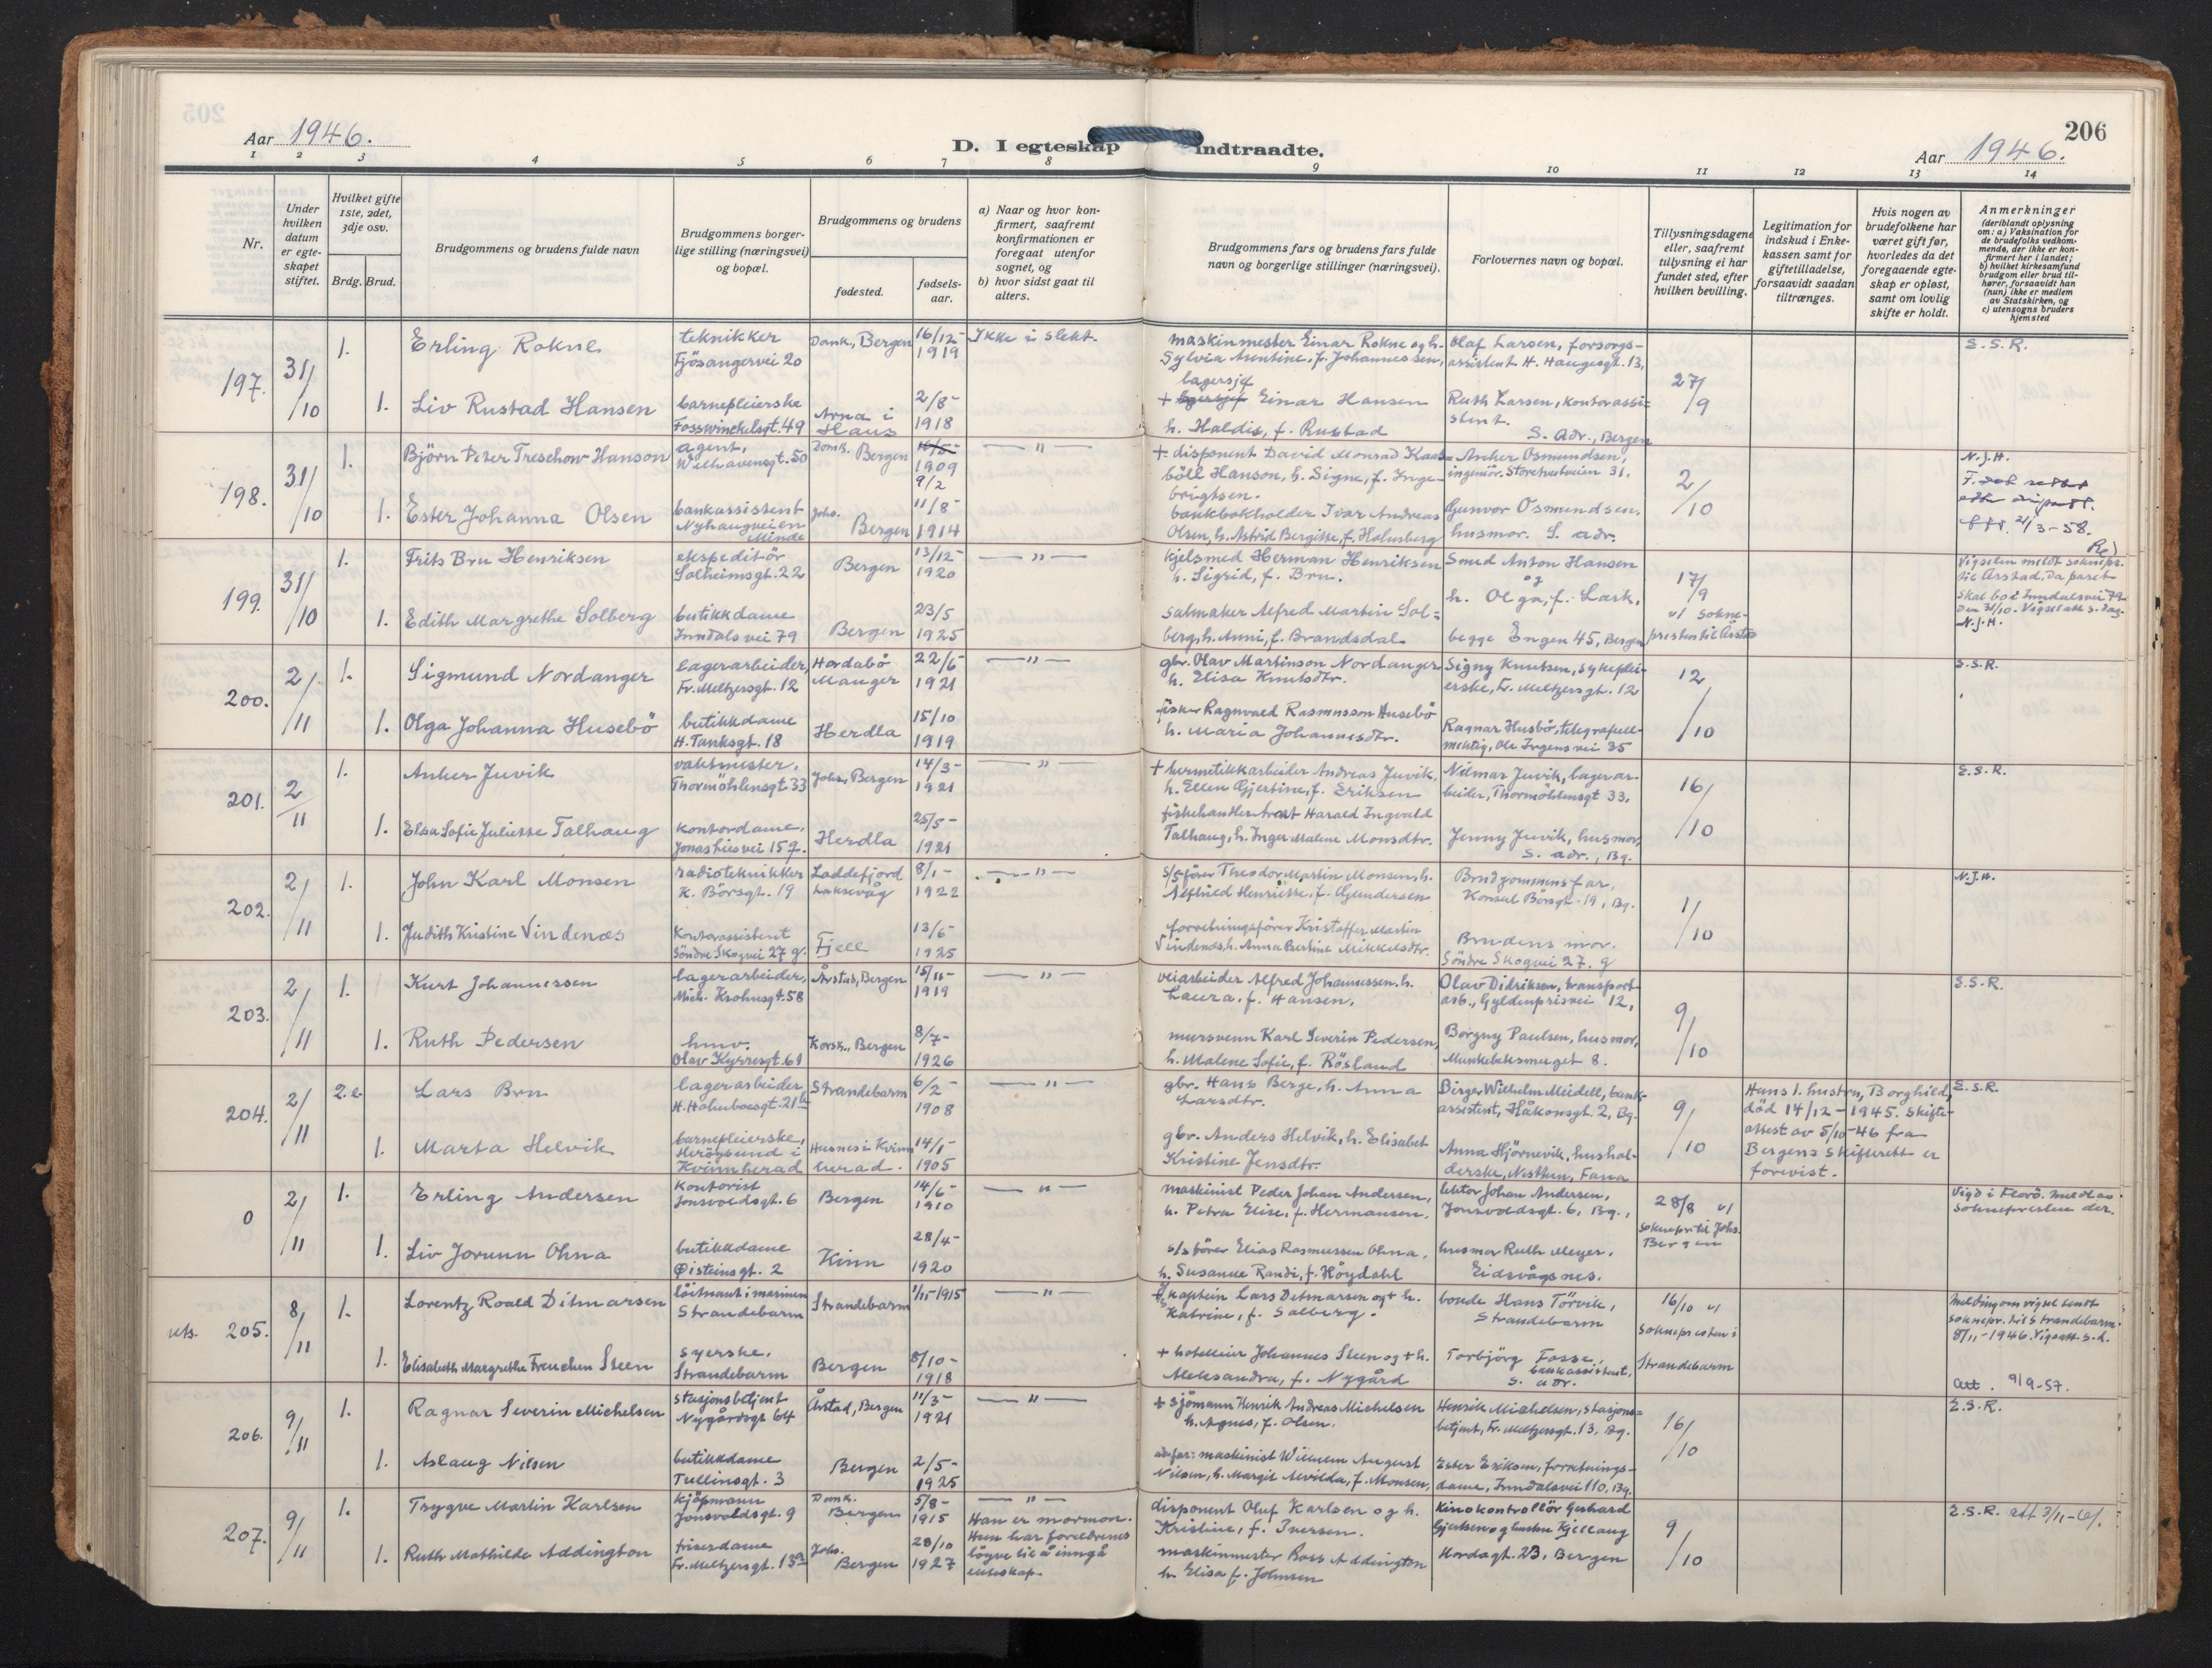 205
206
Aar 1946.
D. I egteskap indtraadte.
Aar 1946.
1 2 3 4 5 6 7 8 9 10 11 12 13 14
Nr.
Under hvilken datum er egteskapet stiftet.
Hvilket gifte 1ste, 2det, 3dje osv.
Brdg. Brud.
Brudgommens og brudens fulde navn
Brudgommens borgerlige stilling (næringsvei) og bopæl.
Brudgommens og brudens
fødested.
fødselsaar.
a) Naar og hvor konfirmert, saafremt konfirmationen er foregaat utenfor sognet, og
b) hvor sidst gaat til alters.
Brudgommens fars og brudens fars fulde navn og borgerlige stillinger (næringsvei).
Forlovernes navn og bopæl.
Tillysningsdagene eller, saafremt tillysning ei har fundet sted, efter hvilken bevilling.
Legitimation for indskud i Enkekassen samt for giftetilladelse, forsaavidt saadan tiltrænges.
Hvis nogen av brudefolkene har været gift før, hvorledes da det foregaaende egteskap er opløst, samt om lovlig skifte er holdt.
Anmerkninger
(deriblandt oplysning om: a) Vaksination for de brudefolks vedkommende, der ikke er konfirmert her i landet;
b) hvilket kirkesamfund brudgom eller brud tilhører, forsaavidt han (hun) ikke er medlem av Statskirken, og
c) utensogns bruders hjemsted
197. 31/10 1. Erling Rokne
teknikker Fjösangervei 20
Domk., Bergen 16/12-1919
Ikke i slekt.
maskinmester Einar Rokne og h. Sylvia Arentine, f. Johannessen,
Olaf Larsen, forsorgsassistent H. Haugesgt. 13,
27/9
E.S.R.
1. Liv Rustad Hansen
barnepleierske Fosswinckelsgt. 49
Arna i Haus 2/8-1918
+ lagersjef Einar Hansen h. Haldis, f. Rustad
Ruth Larsen, kontorassistent. S. adr., Bergen
198. 31/10 1. Björn Peter Treschow Hanson
agent, Welhavensgt. 50
Domk. Bergen 1909 9/2
— " —
+ disponent David Monrad Kaasböll Hanson, h. Signe, f. Ingebrigtsen.
Anker Osmundsen, ingeniör. Storetveitveien 31.
2/10
N.J.H.
21/3-58.
1. Ester Johanna Olsen
bankassistent Nyhaugveien Minde
Johs. Bergen 11/8-1914
bankbokholder Ivar Andreas Olsen, h. Astrid Bergitte, f. Holmberg
Gunvor Osmundsen, husmor. S. adr.
199. 31/10 1. Frits Bru Henriksen
ekspeditör Solheimsgt. 22
Bergen 13/12-1920
— " —
kjelsmed Herman Henriksen h. Sigrid, f. Bru.
Smed Anton Hansen og h. Olga, f. Lark,
17/9 v/ soknepresten til Årstad
Vigselen meldt soknepr. til Årstad. Da paret skal bo i Inndalsvei 79. Den 31/10. Vigselatt. s. dag.
N.J.H.
1. Edith Margrethe Solberg
butikkdame Inndalsvei 79
Bergen 23/5 1925
salmaker Alfred Martin Solberg, h. Anni, f. Brandsdal
begge Engen 45, Bergen
200. 2/11 1. Sigmund Nordanger
lagerarbeider, Fr. Meltzersgt. 12
Hordabö Manger 22/6 1921
— " —
gbr. Olav Martinson Nordanger h. Elisa Knutsdtr.
Signy Knutsen, sykepleierske, Fr. Meltzersgt. 12
12/10
E.S.R.
1. Olga Johanna Husebö
butikkdame H. Tanksgt. 18
Herdla 15/10 1919
fisker Ragnvald Rasmusson Husebö h. Maria Johannesdtr.
Ragnar Husbö, telegrafullmektig, Ole Irgensvei 35
201. 2/11 1. Anker Juvik
vaktmester, Thormöhlensgt 33
Johs., Bergen 14/3-1921
— " —
+ hermetikkarbeider Andreas Juvik, h. Ellen Gjertine, f. Eriksen
Nilmar Juvik, lagerarbeider, Thormöhlensgt 33,
16/10
E.S.R.
1. Elsa Sofie Juliette Talhaug
kontordame, Jonas Liesvei 159.
Herdla 25/5-1921
fiskehandler Arent Harald Ingvald Talhaug, h. Inger Malene Monsdtr.
Jenny Juvik, husmor, S. adr., Bg.
202. 2/11 1. John Karl Monsen
radiotekniker K. Börsgt. 19
Laddefjord Laksevåg 8/1-1922
— " —
s/s förer Theodor Martin Monsen, h. Alfhild Henriette, f. Gundersen
Brudgommens far, Konsul Börsgt. 19, Bg.
1/10
N.J.H.
1. Judith Kristine Vindenæs
Kontorassistent Söndre Skogvei 27 g.
Fjell 13/6-1925
forretningsförer Kristoffer Martin Vindenæs, h. Anna Bertine Mikkelsdtr.
Brudens mor. Söndre Skogvei 27. g
203. 2/11 1. Kurt Johannessen
lagerarbeider, Mich. Krohnsgt. 58
Årstad, Bergen 15/11-1919
— " —
veiarbeider Alfred Johannessen, h. Laura, f. Hansen,
Olav Didriksen, transportarb., Gyldenprisvei 12,
9/10
E.S.R.
1. Ruth Pedersen
hmv. Olav Kyrresgt. 61
Korsk., Bergen 8/7-1926
mursvenn Karl Severin Pedersen, h. Malene Sofie, f. Rösland
Borgny Paulsen, husmor, Munkebotsmuget 8.
204. 2/11 2.e Lars Bru
lagerarbeider H. Holmboesgt. 21b
Strandebarm 6/2-1908
— " —
gbr. Hans Berge, h. Anna Larsdtr.
Birger Wilhelm Meidell, bankassistent, Håkonsgt. 2, Bg.
9/10
Hans 1. hustru, Borghild, död 14/12-1945. Skifteattest av 5/10-46 fra Bergens Skifterett er forevist.
E.S.R.
1. Marta Helvik
barnepleierske, Heröysund i Kvinnherad
Husnes i Kvinnherad. 14/1-1905
gbr. Anders Helvik, h. Elisabet Kristine Jensdtr.
Anna Hjörnevik, husholderske, Nesttun, Fana
0 2/11 1. Erling Andersen
kontorist Jonsvoldsgt. 6
Bergen 14/6-1910
— " —
maskinist Peder Johan Andersen, h. Petra Elise, f. Hermansen,
lektor Johan Andersen, Jonsvoldsgt. 6, Bg.,
28/8 v/ soknepr. til Johs. Bergen
Vigd i Florö. Meldt av soknepresten der.
1. Liv Jorunn Ohna
butikkdame Øisteinsgt. 2
Kinn 28/4-1920
s/s förer Elias Rasmussen Ohna, h. Susanne Randi, f. Höydahl
husmor Ruth Meyer, Eidsvågsnes.
uts. 205. 8/11 1. Lorentz Roald Ditmarsen
löitnant i marinen Strandebarm
Strandebarm 1/11-1915
— " —
kaptein Lars Detmarsen og + h. Katrine, f. Solberg.
bonde Hans Törvik, Strandebarm
16/10 v/ soknepresten i Strandebarm
Melding om vigsel sendt soknepr. til Strandebarm. 8/11-1946. Vigselatt. s.d.
att. 9/9-57.
1. Elisabeth Margrethe Freuchen Steen
syerske. Strandebarm
Bergen 8/10-1918
+ hotelleier Johannes Steen og + h. Aleksandra, f. Nygård
Torbjörg Fosse, bankassistent, s. adr.
206. 9/11 1. Ragnar Severin Michelsen
stasjonsbetjent Nygårdsgt 64
Årstad, Bergen 11/3-1921
— " —
+ sjömann Henrik Andreas Michelsen h. Agnes, f. Olsen.
Henrik Michelsen, stasjonsbetjent, Fr. Meltzersgt. 13, Bg.
16/10
E.S.R.
1. Aslaug Nilsen
butikkdame Tullinsgt. 3
Bergen 2/5-1925
ad.far: maskinist Willum August Nilsen, h. Margit Alvilda, f. Monsen,
Ester Eriksen, forretningsdame, Inndalsvei 110, Bg.
207. 9/11 1. Trygve Martin Karlsen
kjöpmann Jonsvoldsgt. 9
Domk. Bergen 5/8-1915
— " —
Han er mormon. Hun har foreldrenes löyve til å inngå ekteskap.
disponent Oluf Karlsen og h. Kristine, f. Iversen.
Kinokontrollör Gerhard Gjertsen og hustru Kjellaug Hordagt. 23, Bergen
9/10
E.S.R. att 3/11-61.
1. Ruth Mathilde Addington
friserdame Fr. Meltzersgt. 13a
Johs. Bergen 28/10 1927
maskinmester Ross Addington h. Elisa f. Johnsen